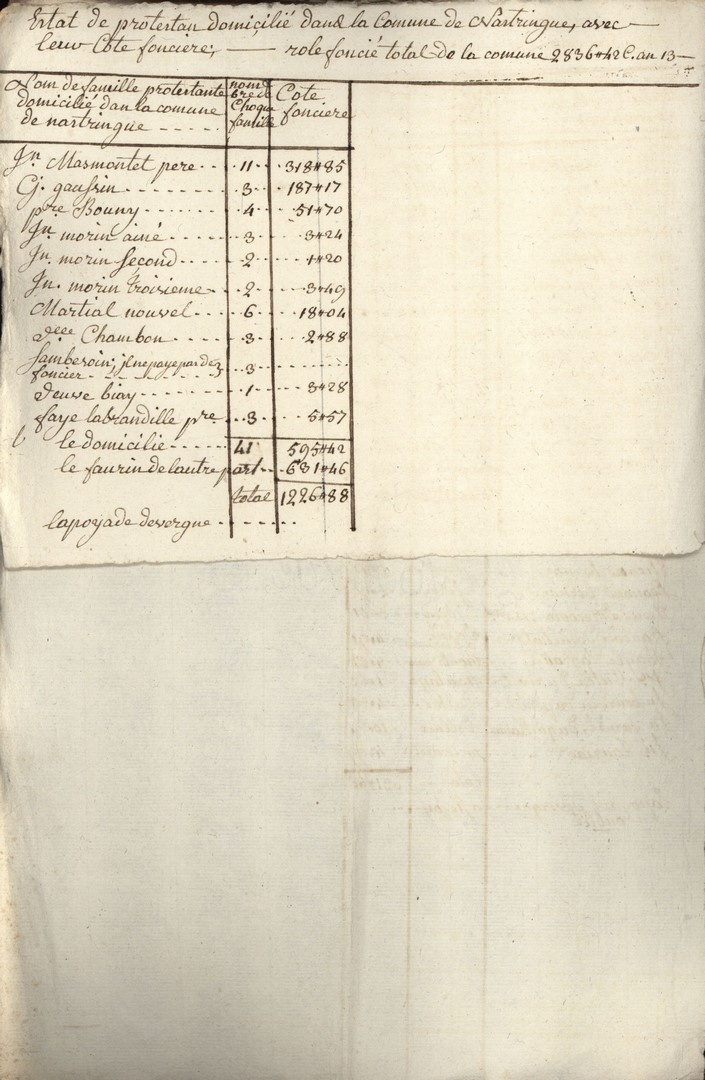 Estat de protestan domicilié dans la Comune de Nastringue, avec
leur Cote fonciere, role foncié total de la comune 2836#42C. an 13
Nom de famille protestante domicilié dan la comune de nastringue
nombre de Choque famille
Cote fonciere
Jn. Masmontet pere 11 318#85
Cj. gaussin 3 187#17
pre Bouny 4 51#70
Jn morin ainé 3 3#24
Jn. morin second 2 1#20
Jn. morin troisieme 2 3#49
Martial nouvel 6 18#04
Chambon 3 2#88
jl ne paye pas de foncier 3
veuve biay 1 3#28
faye labrandille pre 3 5#57
le domicilie 41 595#42
le faurin de lautre part 631#46
total 1226#88
lapoyade devergne